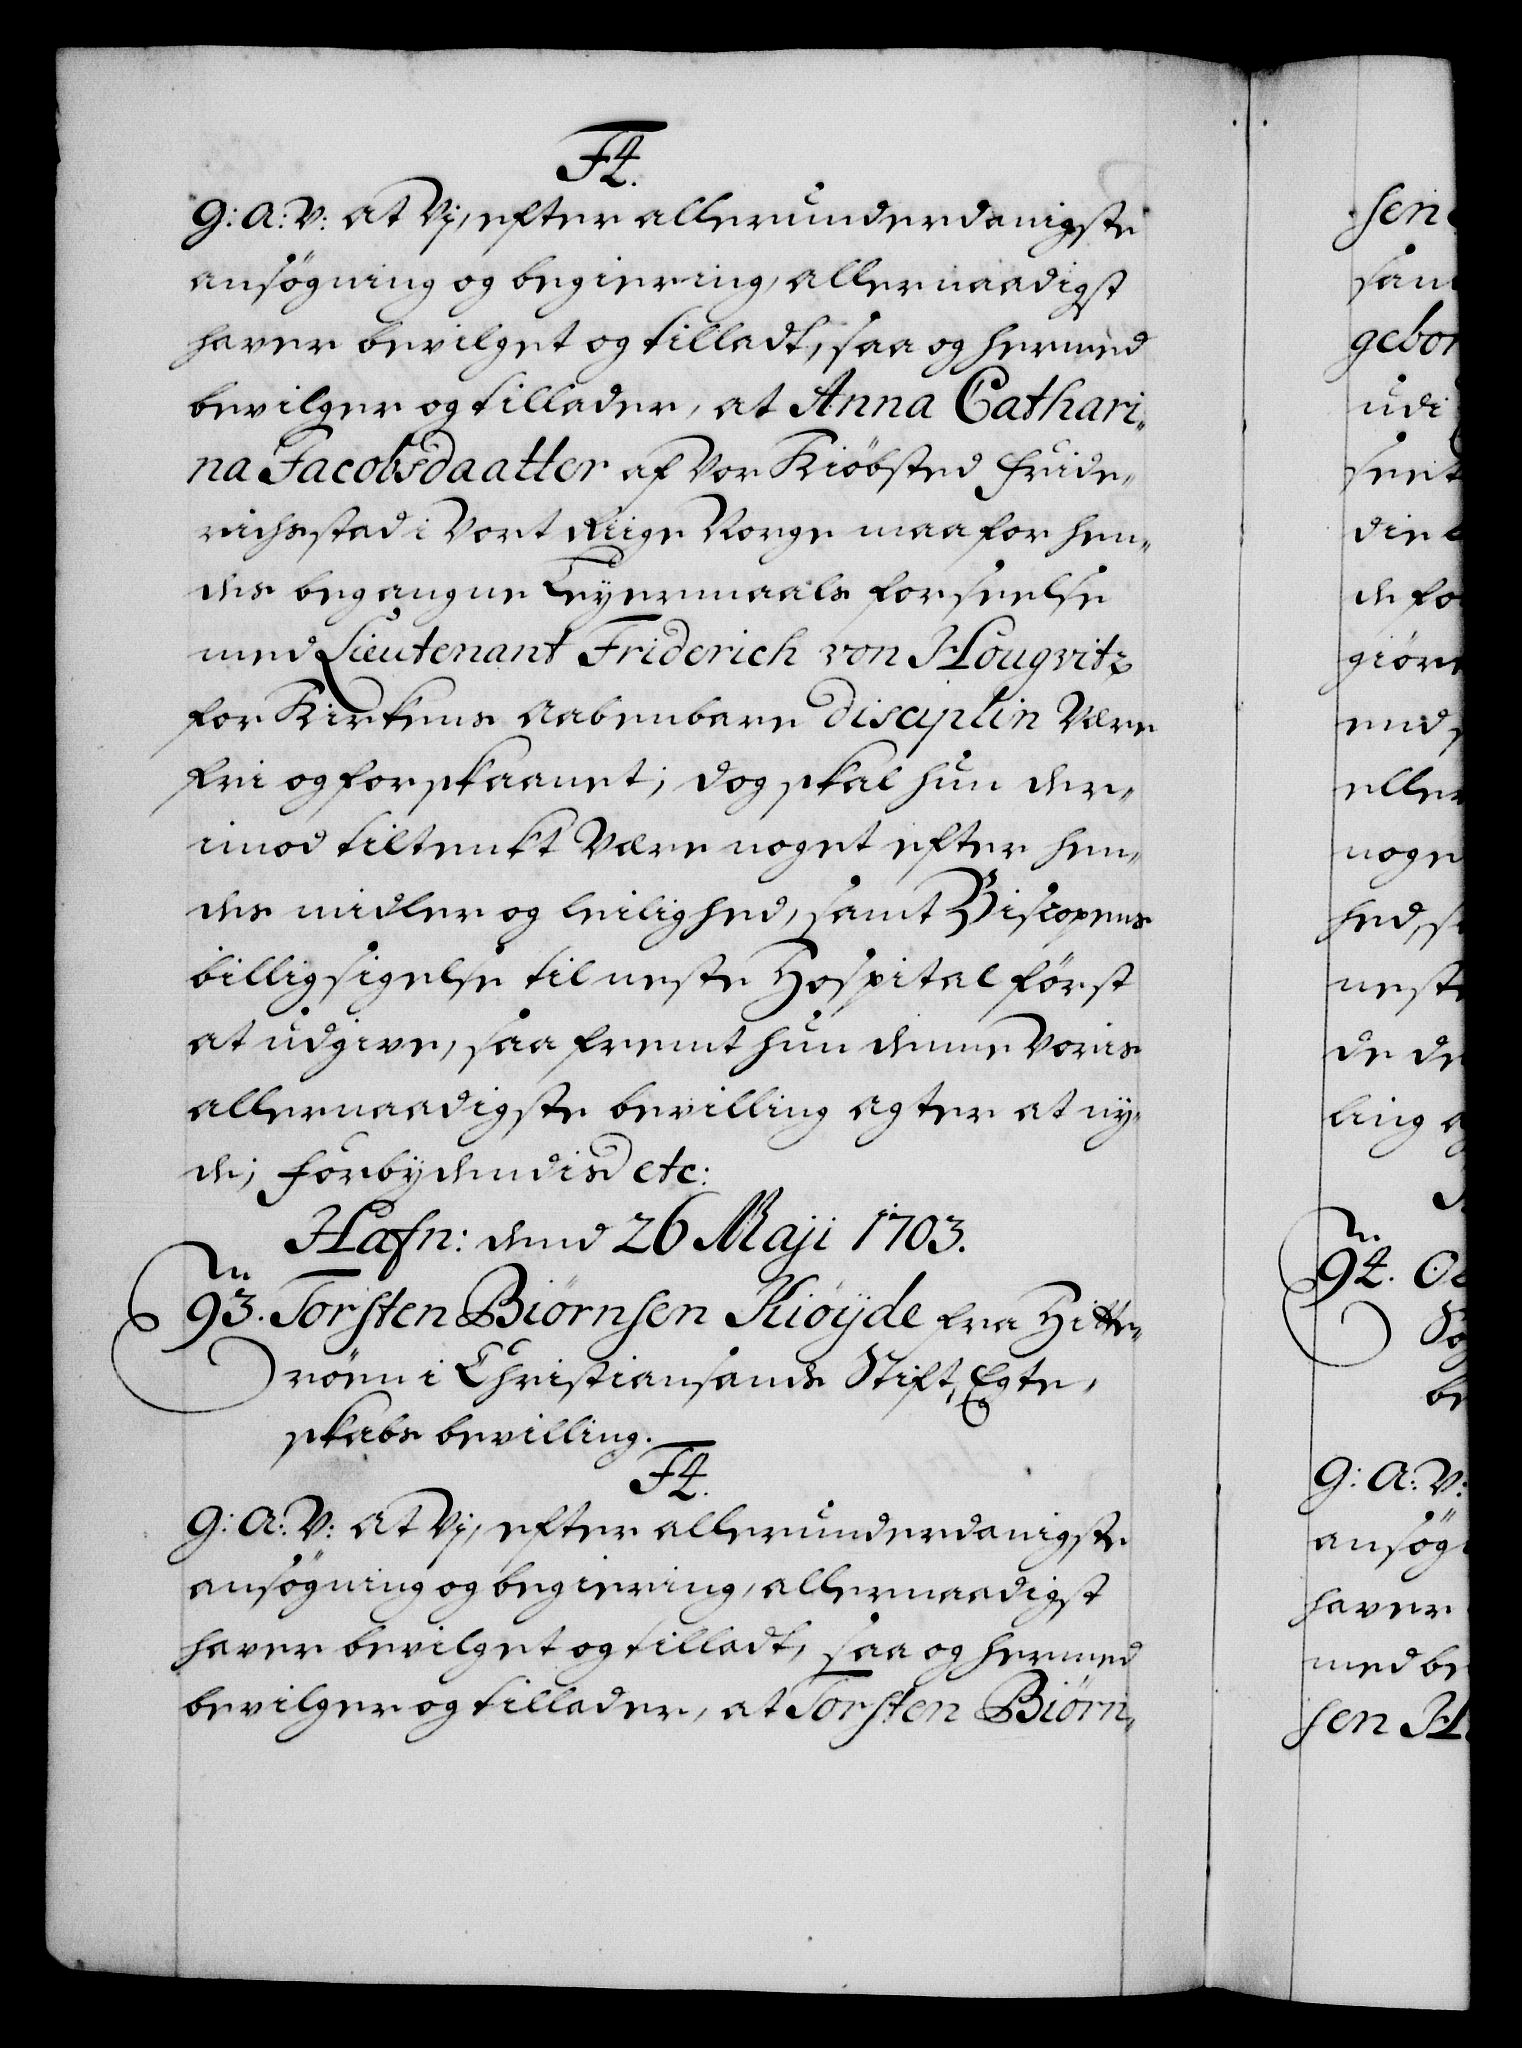 F4.
G: A: V: at Vj, efter allerunderdanigste
ansøgning og begiering, allernaadigst
haver bevilget og tilladt, saa og hermed
bevilger og tillader, at Anna Cathari-
na Jacobsdaatter af Vor Kiöbsted Fride-
richsstad i Vort Riige Norge maa for hen-
des begangne Leyermaals forseelse
med Lieutenant Friderich von Hougvitz
for Kirkens Aabenbare disciplin Være
fri og forskaanet; dog skal hun der-
imod tiltenkt Være noget efter hen-
des midler og leilighed, samt Biscopens
billigsigelse til neste Hospital först
at udgive, saa fremt hun denne Voris
allernaadigste bevilling agter at ny-
de; Forbydendis etc:
Hafn: dend 26 Maji 1703.
93. Torsten Biörnsen Kiöyde fra Hitte-
röen i Christiansands Stift, Egte-
skabs bevilling.
F4.
G: A: V: At Vj, efter allerunderdanigste
ansögning og begiering, allernaadigst
haver bevilget og tilladt, saa og hermed
bevilger og tillader, at Torsten Biörn-
sen
san
gebor
udi
de
giöre
eller
noge
hed,
neste
de de
ling
94.
be
G: A: V:
ansög
haver
med be
sen